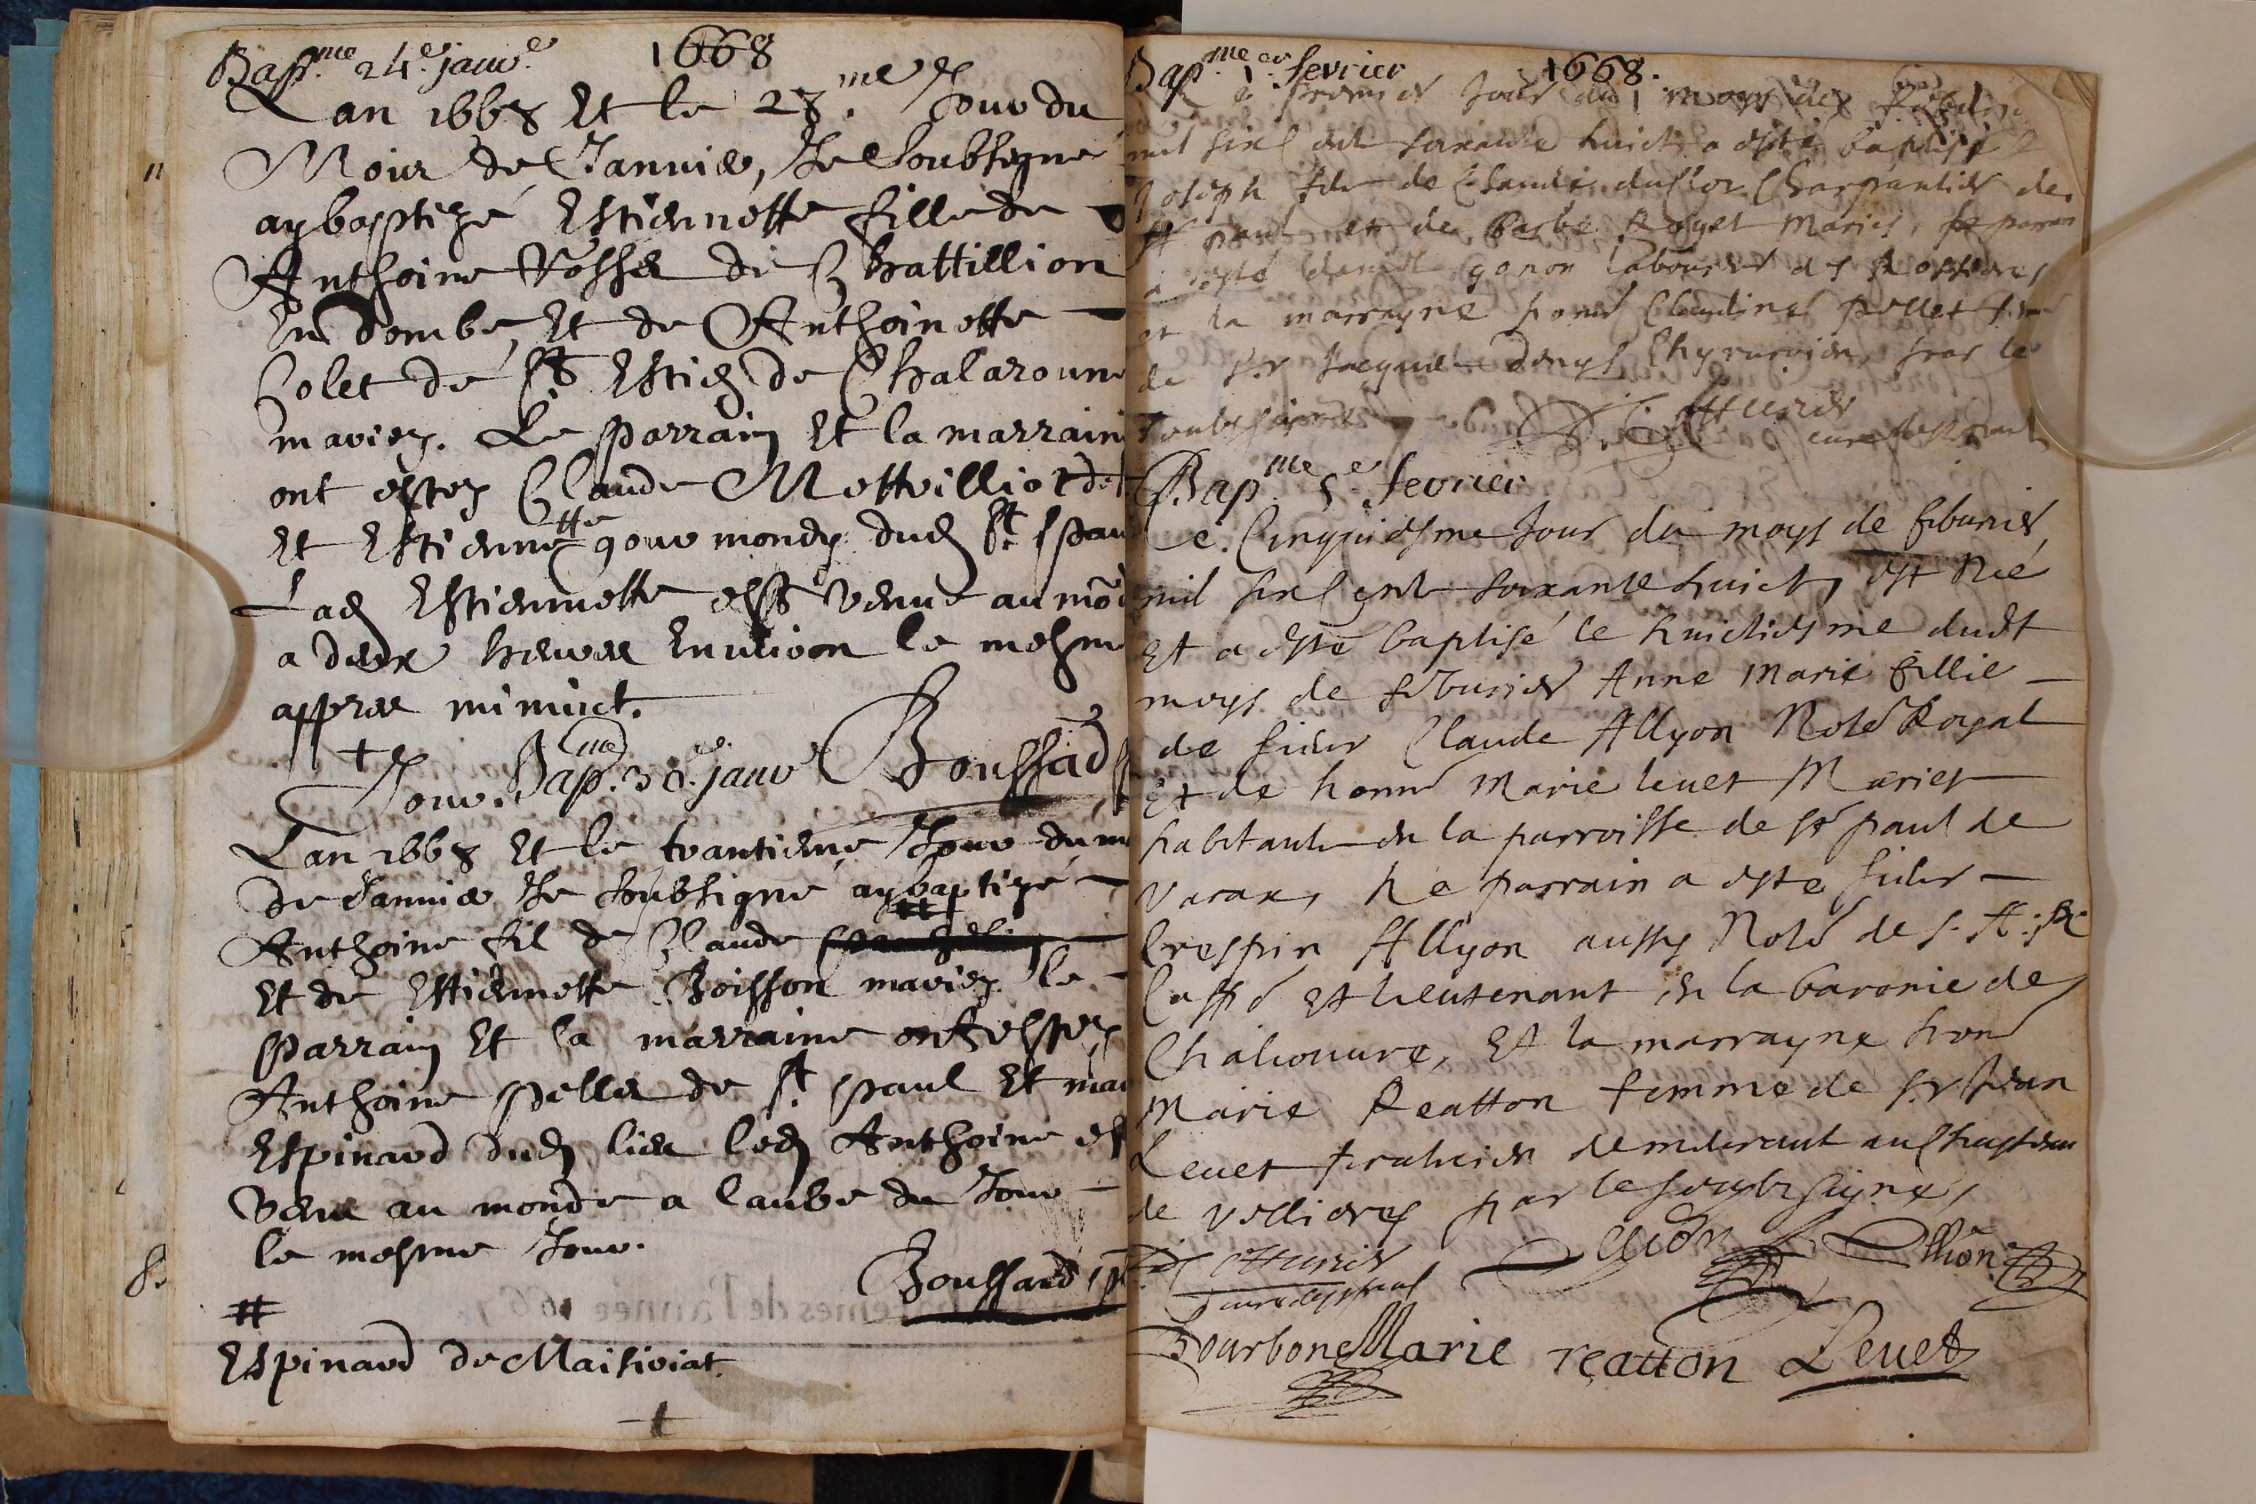 Bap.me 24e janv.e 1668
Lan 1668 Et le 23.me Jour du
Mois de Janvier, Je Soubsigne
ay baptizé Estiennette fille de
Anthoine Vosser de Chattillion
En dombe, Et de Anthoinette
Colet de St Estie de Chalaroune
mariez. Le parrain Et la marraine
ont estez Claude Mettrilliot de
Et Estiennette gourmondy dud St paul
Lad Estiennette est venue au mo
a deux heures Environ le mesme
appres minuict.
+ Jour. Boussard
Bap.me 30e janv
Lan 1668 Et le trantiesme Jour du m
de Janvier Je Soubsigné ay baptizé
Anthoine fil de Claude #
Et de Estiennette Boisson mariez. le
parrain Et la marraine ont estez
Anthoine peller de St paul Et mar
Espinard dud lieu led Anthoine es
venu au monde a laube du Jour
le mesme Jour.
Boussard
#
Espinard de Maisiriat.
+
Bap.me 1.er fevrier 1668.
Le premier Jour du moys de
mil six cent soixante huict a esté baptisé
Joseph fils de Charpantier de
St paul et de Barbe Royet Mariés, le parrain
a esté ganon laboureur
et la marrayne hond Claudine pellet
de Sr Jacques Denys Chyrurgien, par le
soubsigné
cure de St paul
Bap.me 5.e fevrier
Le Cinquiesme Jour du moys de feburier
mil six cent soixante huict, est Née
Et a esté baptisé le huictiesme dudt
moys de feburier Anne Marie fillie
de sieur Claude Allyon Notre Royal
Et de honne Marie leuet Mariés
habitants en la parroisse de St paul de
varax, Le parrain a este sieur
Crespin Allyon aussy Notre de S. A.
Et lieutenant en la baronie de
Et la marrayne hond
Marie Reatton femme de Sr Jean
Leuet praticien demeurant au Chasteau
de vellieres par le soubsigné,
Allion
cure de St paul
Bourbon Marie reatton Leuet